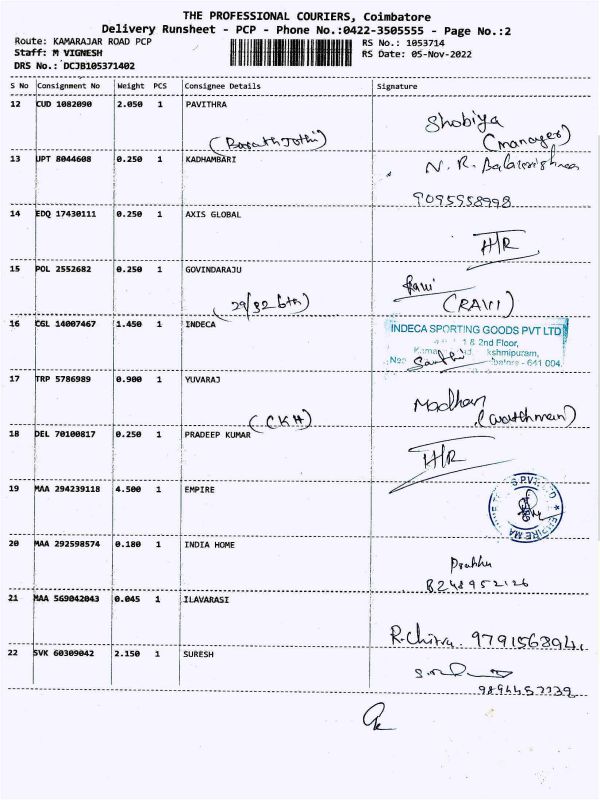 THE PROFESSIONAL COURIERS, Coimbatore
Delivery Runsheet - PCP - Phone No.:0422-3505555 - Page No.:2
Route: KAMARAJAR ROAD PCP RS No.: 1053714
Staff: M VIGNESH RS Date: 05-Nov-2022
DRS No.: DCJB105371402
S No Consignment No Weight PCS Consignee Details Signature
12 CUD 1082090 2.050 1 PAVITHRA
Shobiya
(manager)
13 UPT 8044608 0.250 1 KADHAMBARI
N. R. Balakrishnan
9095958998
14 EDQ 17430111 0.250 1 AXIS GLOBAL
H/R
15 POL 2552682 0.250 1 GOVINDARAJU
Ravi
(29/32 6th) (RAVI)
16 CGL 14007467 1.450 1 INDECA
INDECA SPORTING GOODS PVT LTD
1 & 2nd Floor,
kshmipuram,
- 641 004.
17 TRP 5786989 0.900 1 YUVARAJ
Madhan
(CKH) (watthmain)
18 DEL 70100817 0.250 1 PRADEEP KUMAR
H/R
19 MAA 294239118 4.500 1 EMPIRE
EMPIRE
20 MAA 292598574 0.180 1 INDIA HOME
Prabhu
8248952126
21 MAA 569042043 0.045 1 ILAVARASI
R.Chitra 9791563941
22 SVK 60309042 2.150 1 SURESH